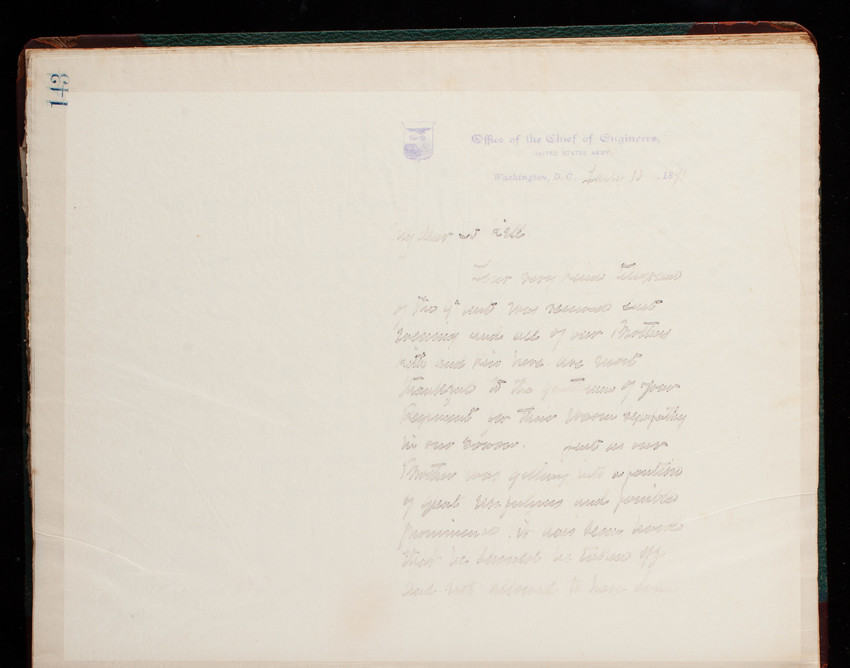 143
Office of the Chief of Engineers,
UNITED STATES ARMY,
Washington, D.C. 189
My dear
Your very kind
of the 9th inst was received last
evening and all of our Brothers
kith and kin here are most
thankful to the gentlemen of your
Regiment for their warm sympathy
in our sorrow. Just as our
Brother was getting into a position
of great usefulness and possible
prominence, it has been hard
that he should be taken off
and not allowed to have